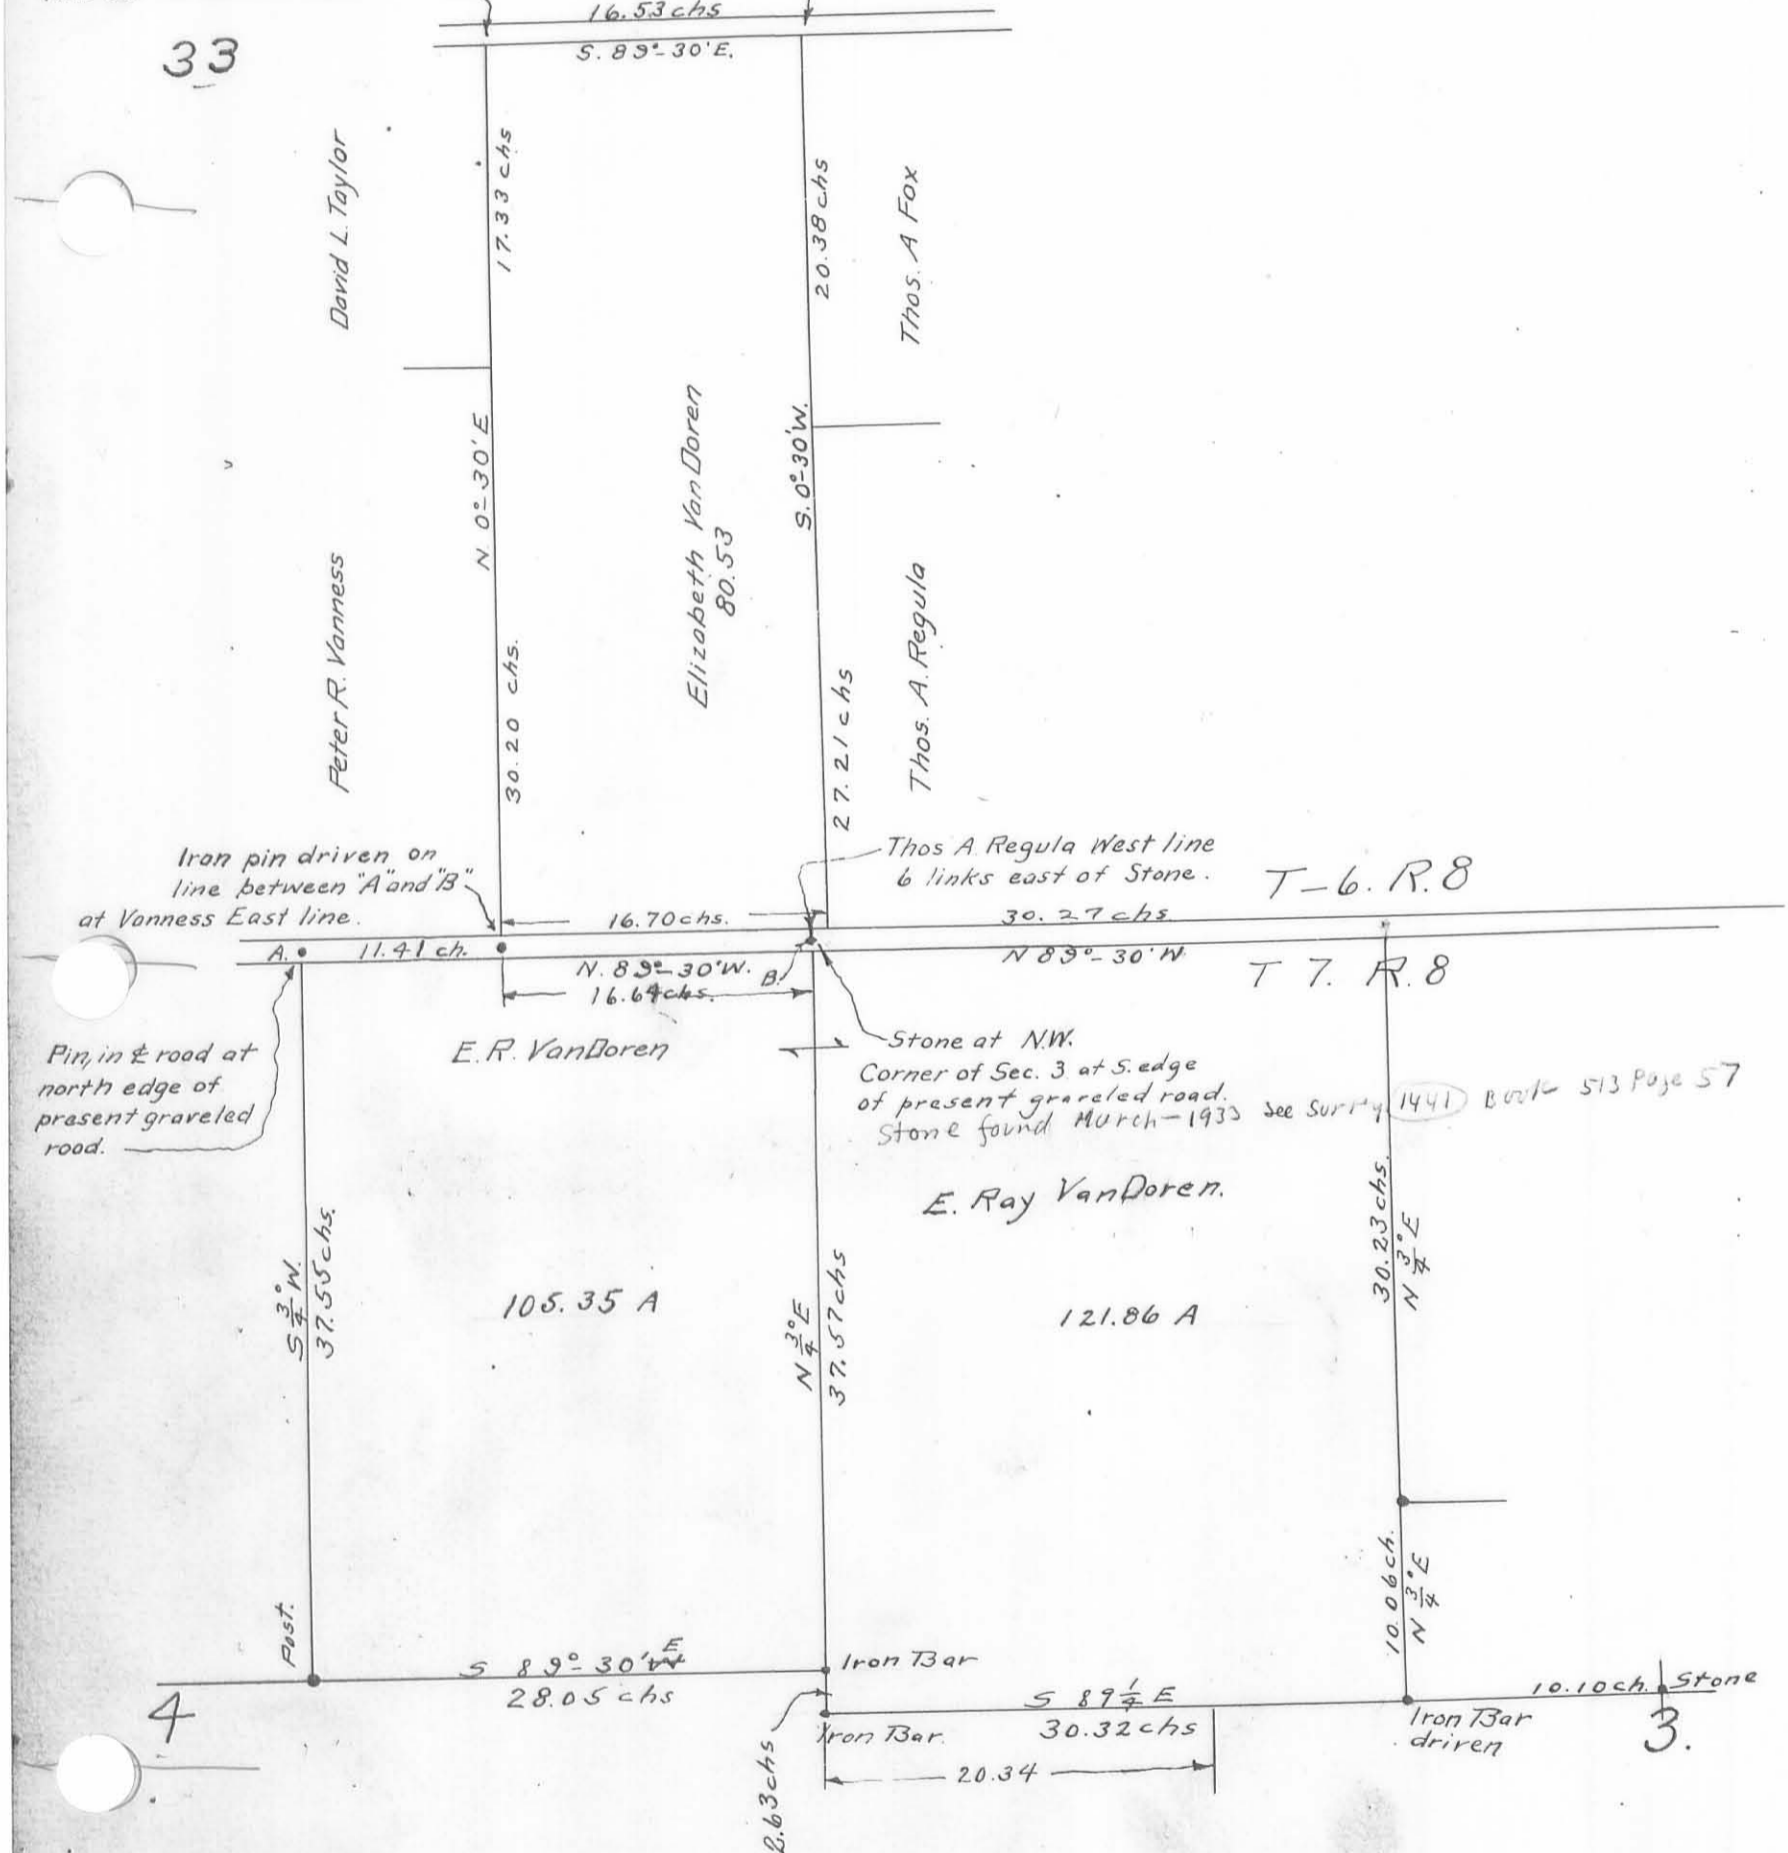 16.53 chs
33
S. 89°-30'E.
David L. Taylor
17.33 chs
20.38 chs
Thos. A Fox
N. 0°-30' E
Elizabeth VanDoren
80.53
S. 0°-30'W.
Peter R. Vanness
30.20 chs.
27.21 chs
Thos. A. Regula
Iron pin driven on
line between "A" and "B"
at Vanness East line.
Thos A. Regula West line
6 links east of Stone.
T-6. R.8
16.70 chs.
30.27 chs
A.
11.41 ch.
N. 89°-30'W.
16.64 chs.
B.
N 89°-30'W
T 7. R.8
Pin, in ℄ road at
north edge of
present graveled
road.
E.R. VanDoren
Stone at N.W.
Corner of Sec. 3 at S. edge
of present graveled road.
Stone found March-1933 See Survey 1441 Book 513 Page 57
E. Ray VanDoren.
S 3/4° W.
37.55 chs.
105.35 A
N 3/4° E
37.57 chs
121.86 A
30.23 chs.
N 3/4° E
Post.
10.06 ch.
N 3/4° E
S 89°-30' W E
28.05 chs
Iron Bar
4
2.63 chs
Iron Bar.
S 89 1/4 E
30.32 chs
20.34
Iron Bar
driven
10.10 ch.
Stone
3.